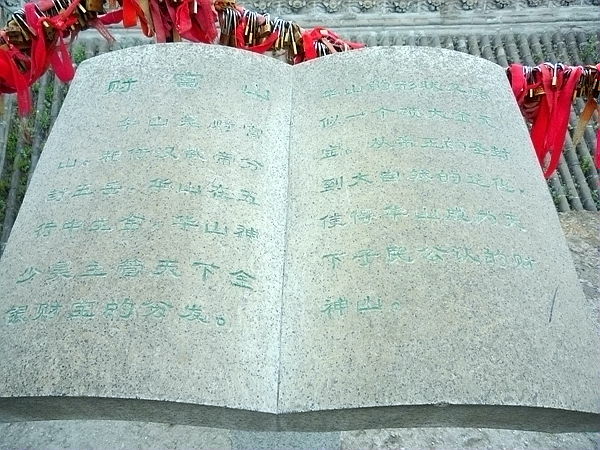 财富山
华山是财富
山。相传汉武帝分
封五岳，华山在五
行中主金，华山神
少昊主管天下金
银财宝的分发。
山的形状又
似一个硕大金元
宝，从帝王的
到大自然的造化，
使得华山成为天
下子民公认的财
神山。